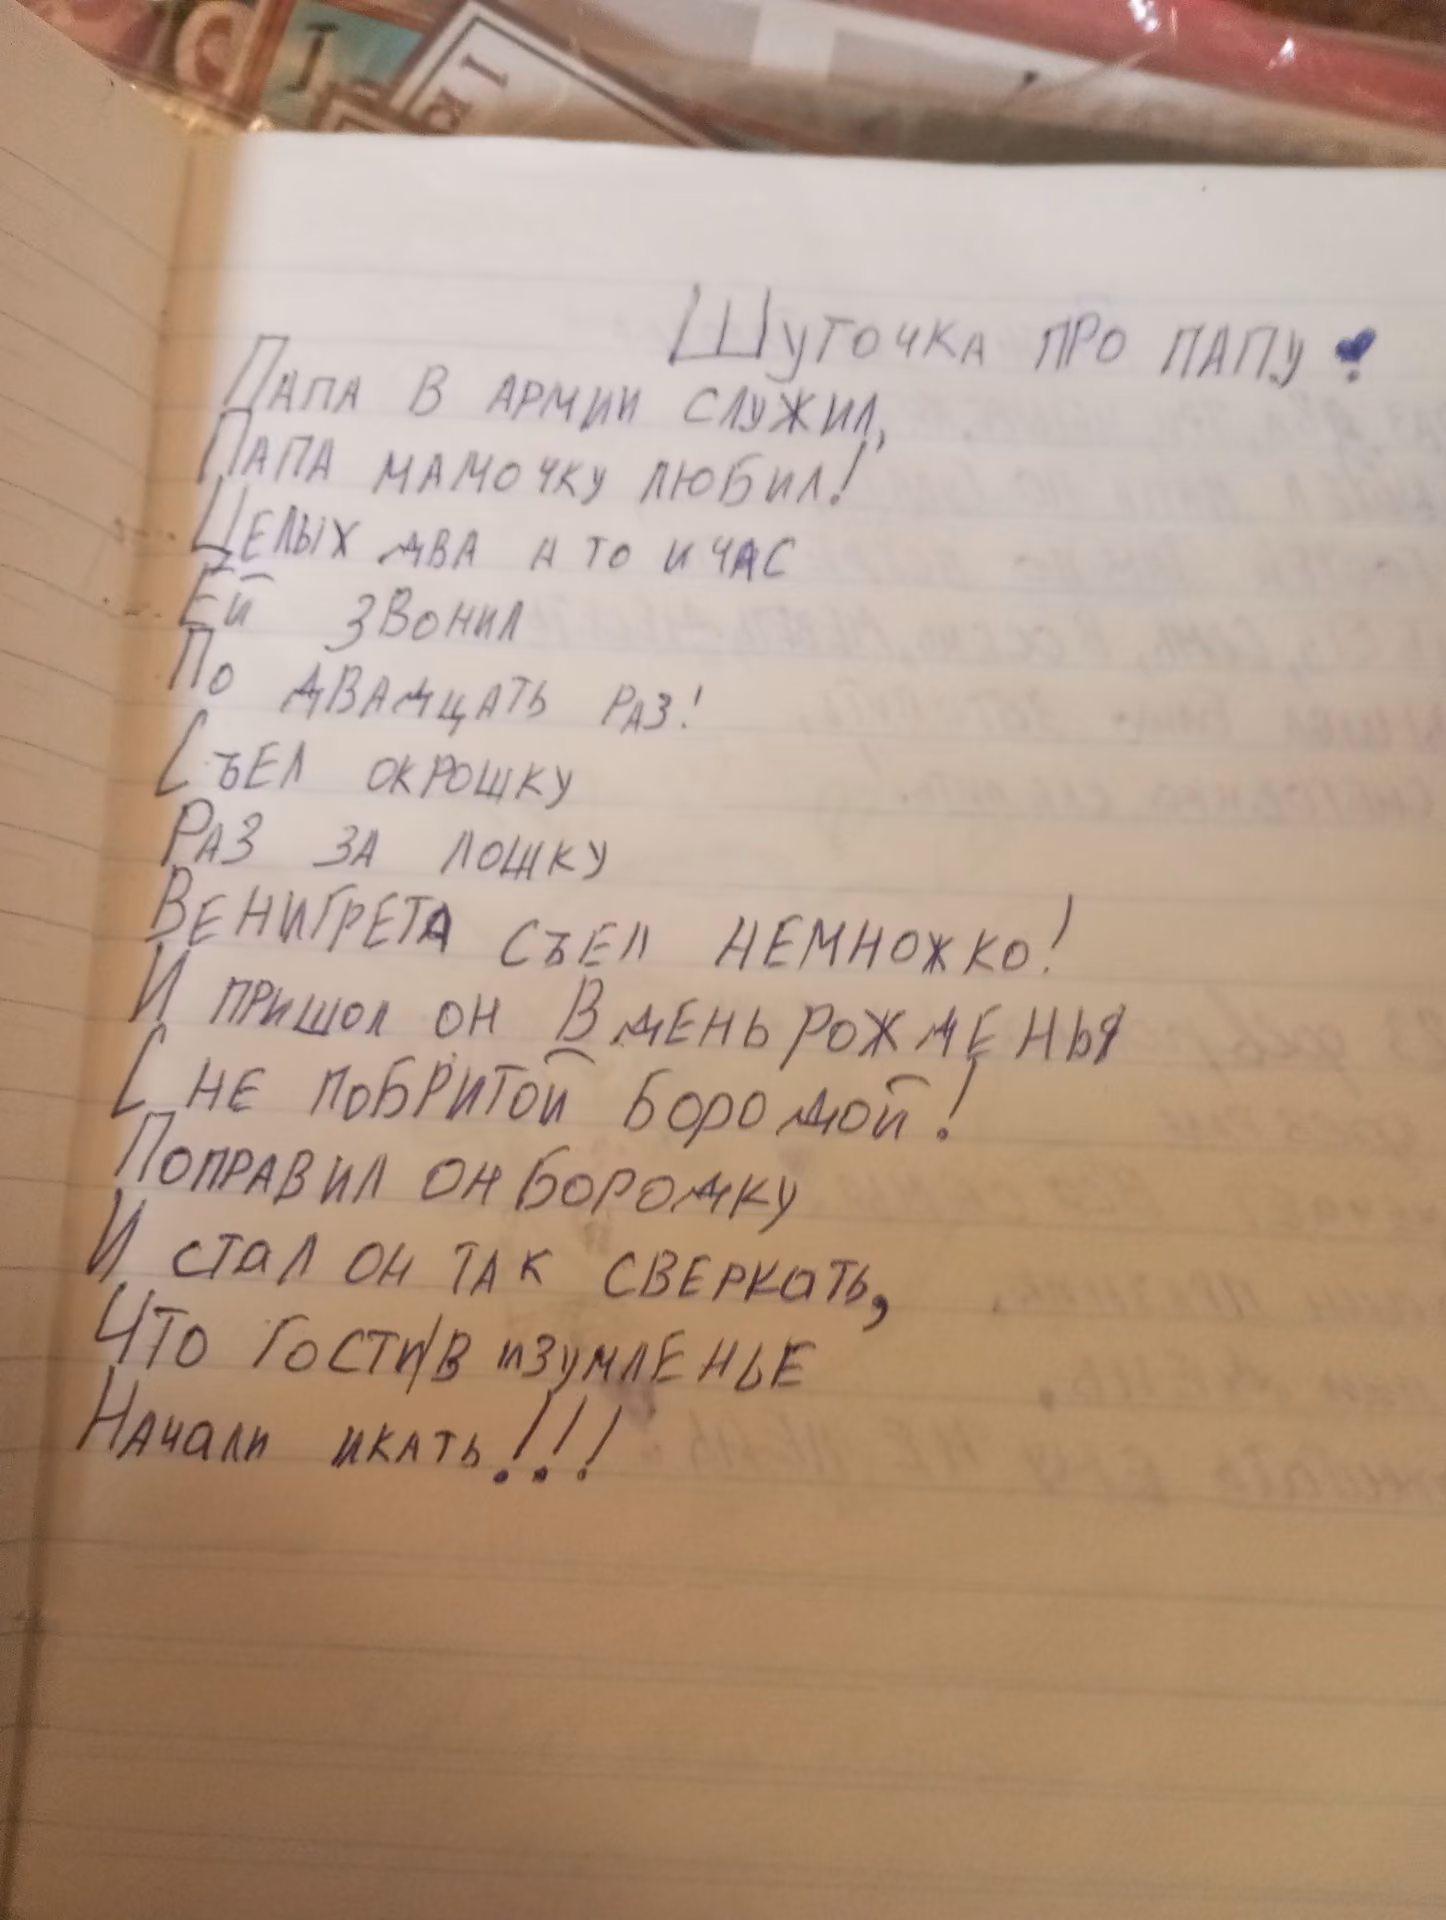 Шуточка про папу!
Папа в армии служил,
Папа мамочку любил!
Целых два а то и час
Ей звонил
По двадцать раз!
Съел окрошку
Раз за лошку
Венигрета съел немножко!
И пришол он в день рожденья
С не побритой бородой!
Поправил он бородку
И стал он так сверкать,
Что гости/в изумленье
Начали икать!!!